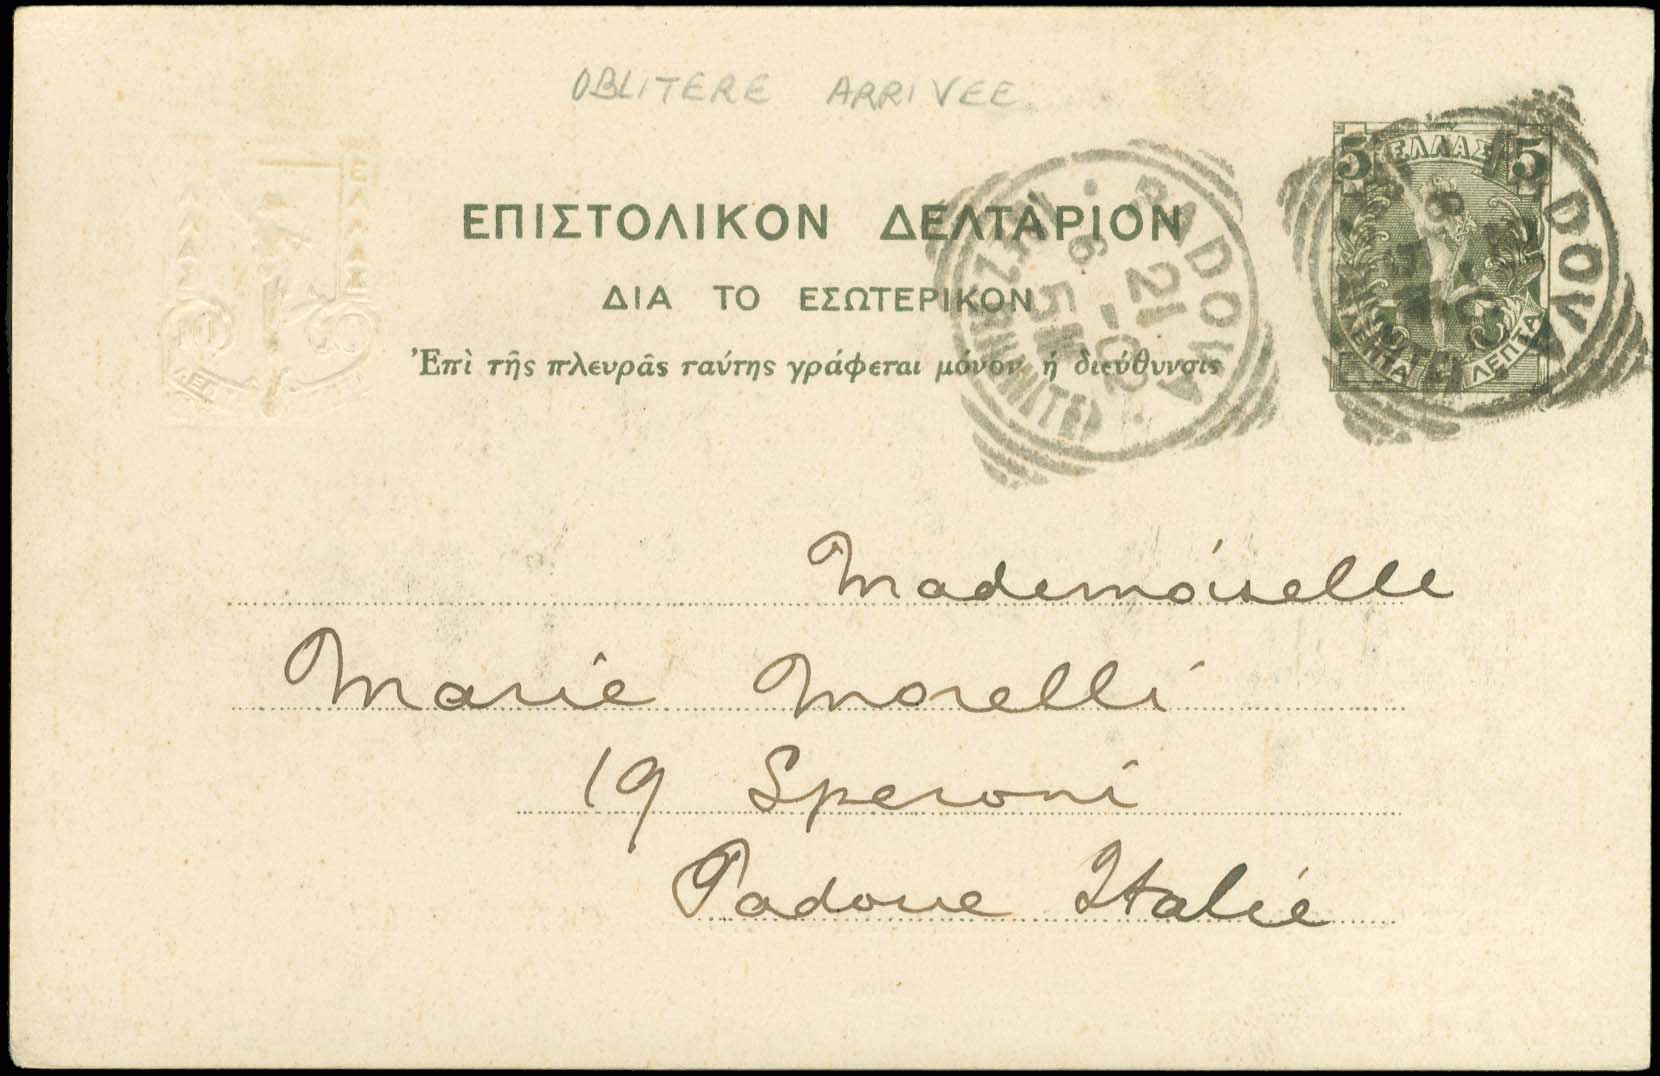 OBLITERE ARRIVEE
ΕΠΙΣΤΟΛΙΚΟΝ ΔΕΛΤΑΡΙΟΝ
ΔΙΑ ΤΟ ΕΣΩΤΕΡΙΚΟΝ
Ἐπὶ τῆς πλευρᾶς ταύτης γράφεται μόνον ἡ διεύθυνσις
5 ΕΛΛΑΣ 5
ΛΕΠΤΑ ΛΕΠΤΑ
PADOVA
21
6 -02
5M
DOVA
ΕΛΛΑΣ
Mademoiselle
Marie Morelli
19 Speroni
Padoue Italie